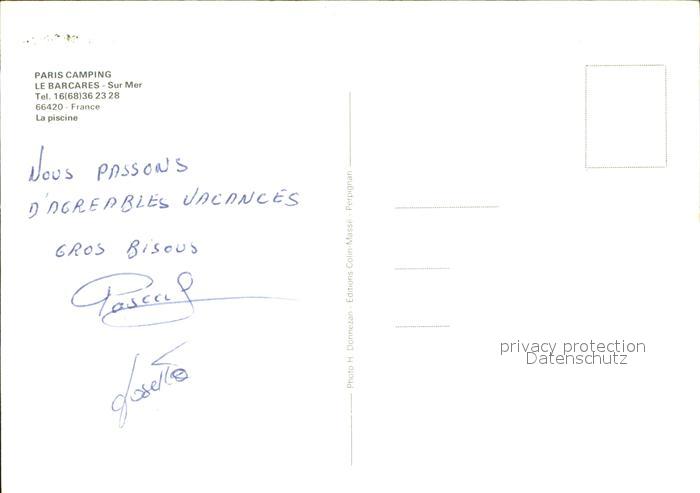 PARIS CAMPING
LE BARCARES - Sur Mer
Tel. 16(68)36 23 28
66420 - France
La piscine
NOUS PASSONS
D'AGREABLES VACANCES
GROS BISOUS
Pascal
Josette
Photo H. Donnezan - Editions Colin-Massé - Perpignan
privacy protection
Datenschutz